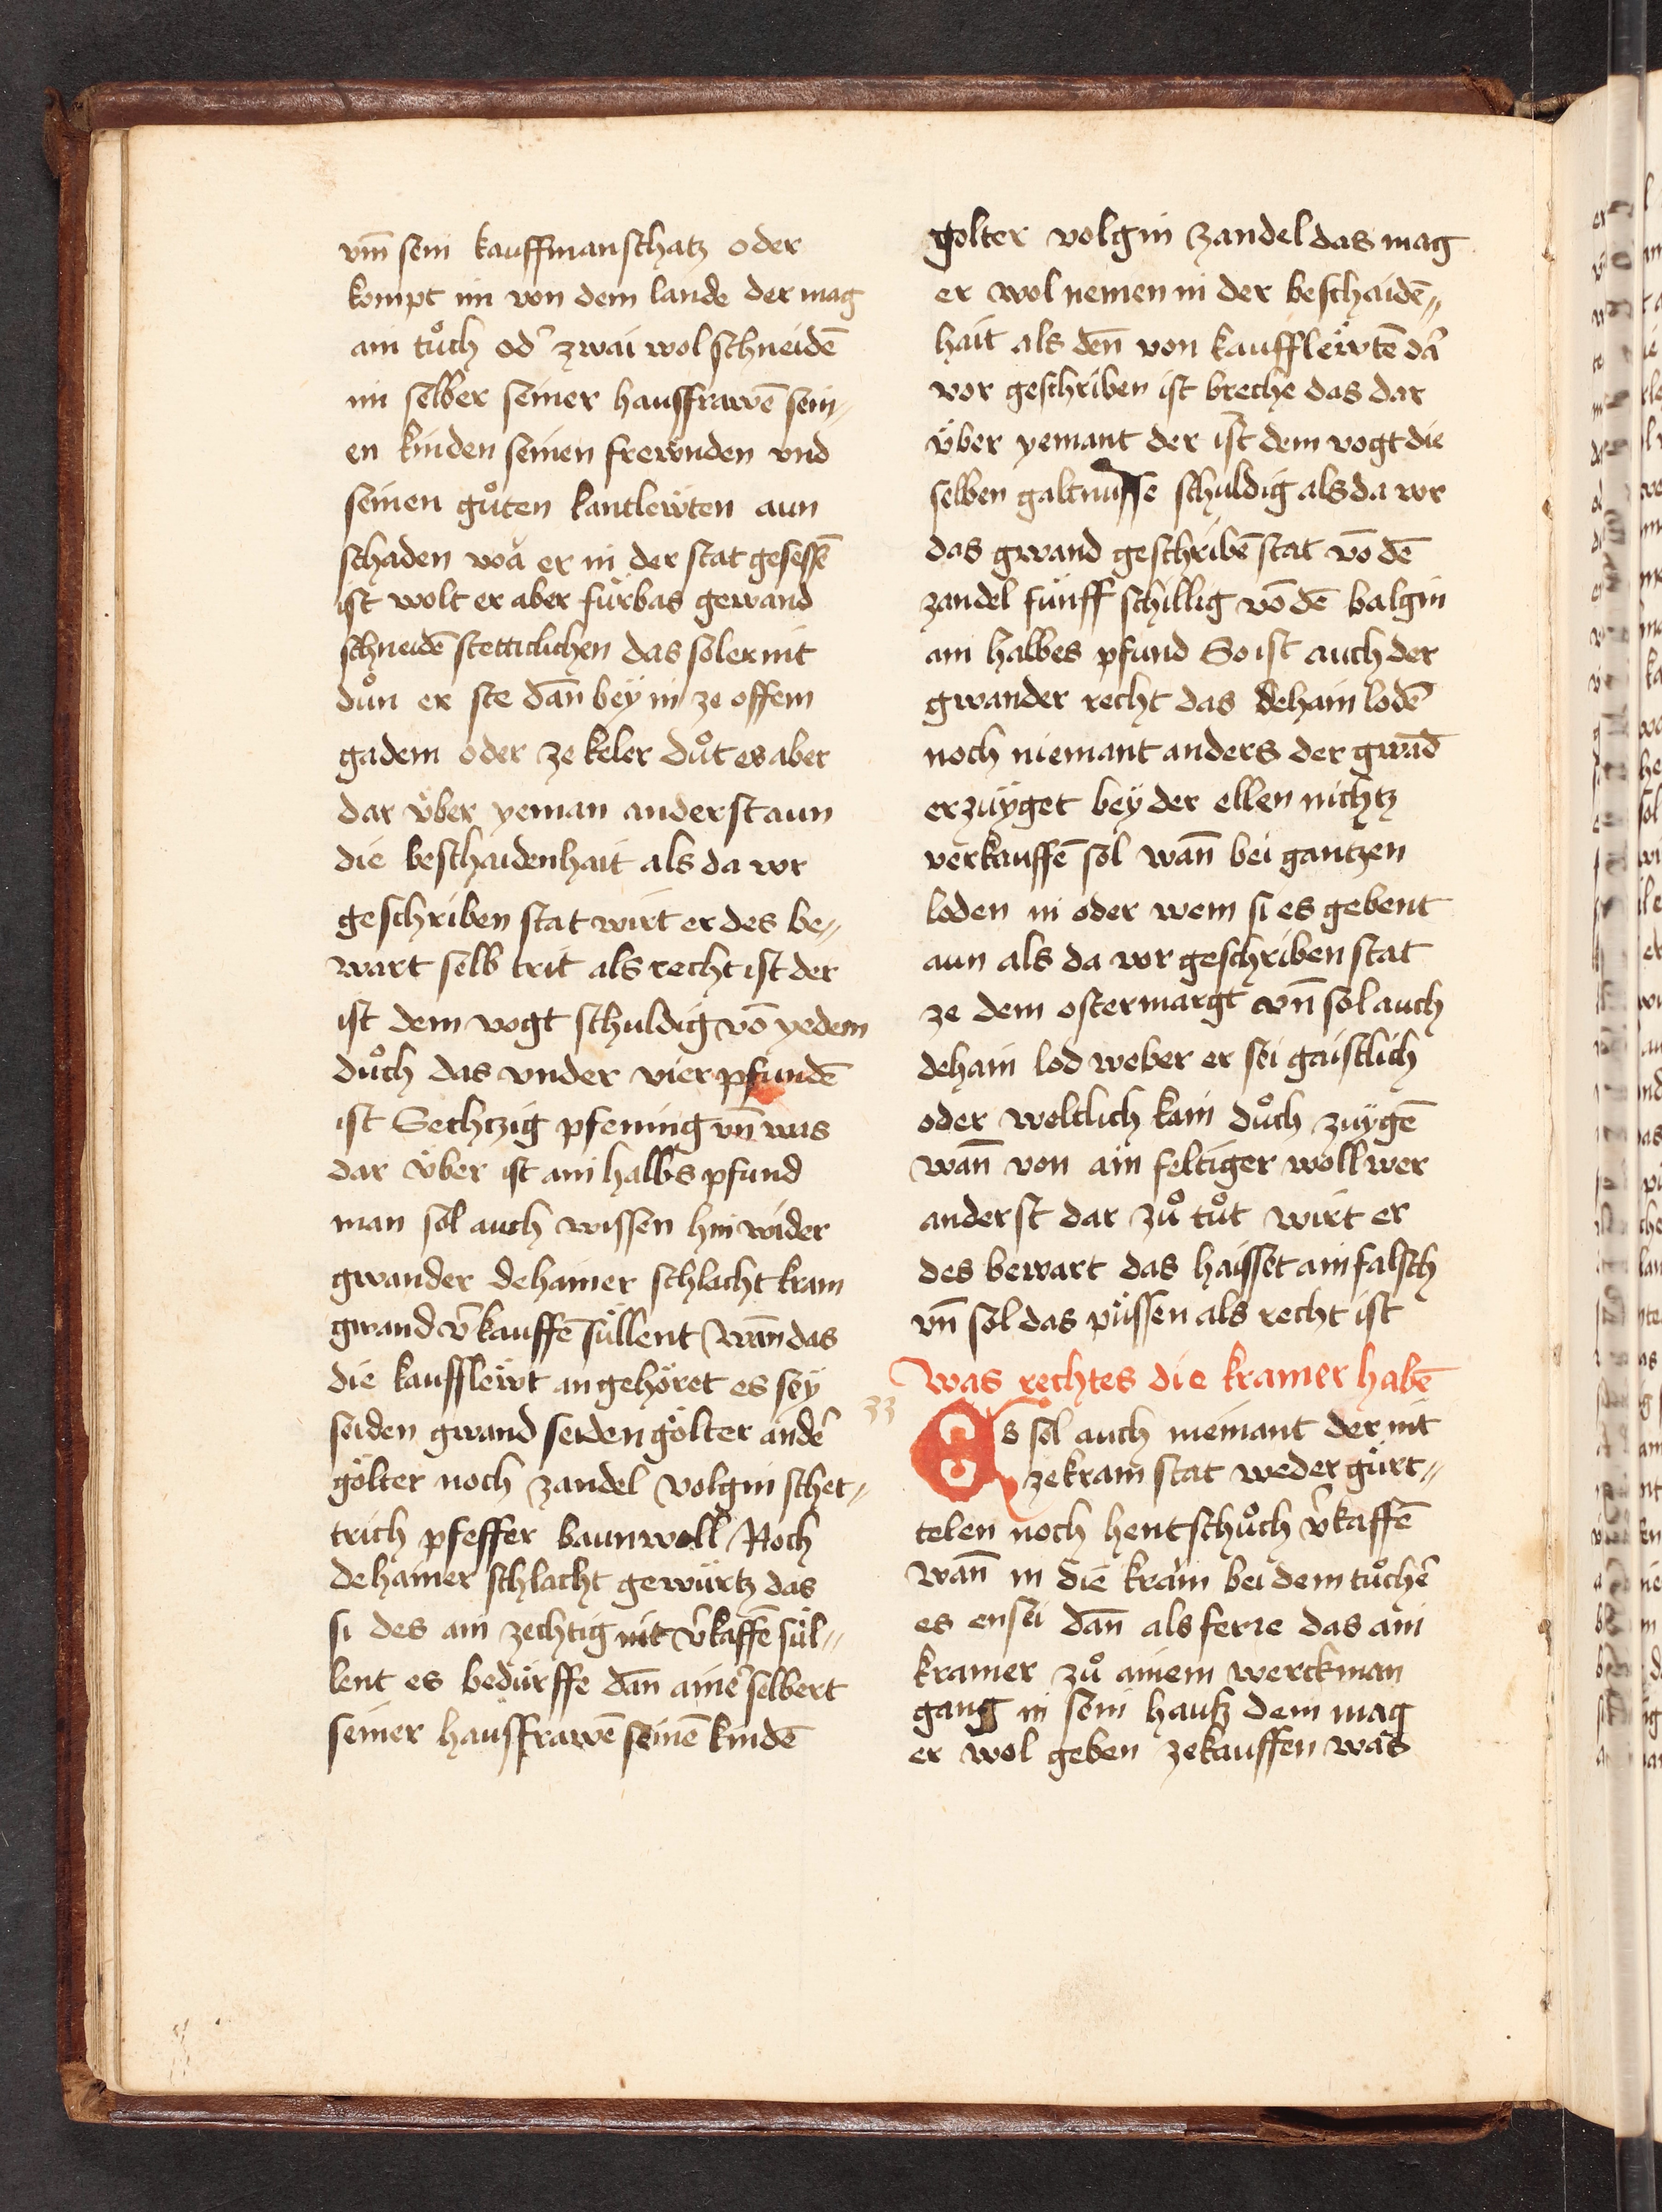 vm̄ sein kauffmanschatz oder
kompt im von dem lande der mag
ain tůch od' zwai wol schneidē
im selber seiner hausfrawē sein„
en kinden seinen frewnden vnd
seinen gůten lantlewten aun
schaden wa er in der stat gesessē
ist wolt er aber fürbas gewand
schneidē stetticlichen das sol er nit
důn er ste dan̄ bey in ze offem
gadem oder ze keler důt er aber
dar über yeman anderst aun
die beschaidenhait als da vor
geschriben stat wirt er des be„
wart selb trit als recht ist der
ist dem vogt schuldig vō yedem
důch das vnder vier pfundē
ist Sechtzig pfening vn̄ was
dar über ist ain halbs pfund
man sol auch wissen hin wider
gwander dehainer schlacht kram
gwand v'kauffē süllent wan̄ das
die kaufflewt an gehöret es sey
seiden gwand seiden gölter ande'
gölter noch zandel volgin schet„
trich pfeffer baunwoll Noch
dehainer schlacht gewürtz das
si des ain zechtig nit v'kaffē sül„
lent es bedürffe dan̄ aine' selbert
seiner hausfrawē seinē kindē
golter volgin zandel das mag
er wol nemen in der beschaidē„
hait als den̄ von kaufflewtē da'
vor geschriben ist breche das dar
über yemant der ist dem vogt die
selben galtnussē schuldig als da vor
das gwand geschribē stat vō dē
zandel fünff schillig vō dē balgin
ain halbes pfund So ist auch der
gwander recht das dehain lodē
noch niemant anders der gwād
erzüyget bey der ellen nichtz
verkauffē sol wan̄ bei gantzen
loden in oder wem si es gebent
aun als da vor geschriben stat
ze dem ostermargt vn̄ sol auch
dehain lod weber er sei gaistlich
oder weltlich kain důch züygē
wan̄ von ain feltiger woll wer
anderst dar zů tůt wirt er
des bewart das haisset ain falsch
vn̄ sol das püssen als recht ist
Was rechtes die kramer habē
33
Es sol auch niemant der nit
ze kram stat weder gürt„
telen noch hentschůch v'kaffē
wan̄ in die kram bei dem tůche'
es ensei dan̄ als ferre das ain
kramer zů ainem werckman
gang in sein hauß dem mag
er wol geben ze kauffen was